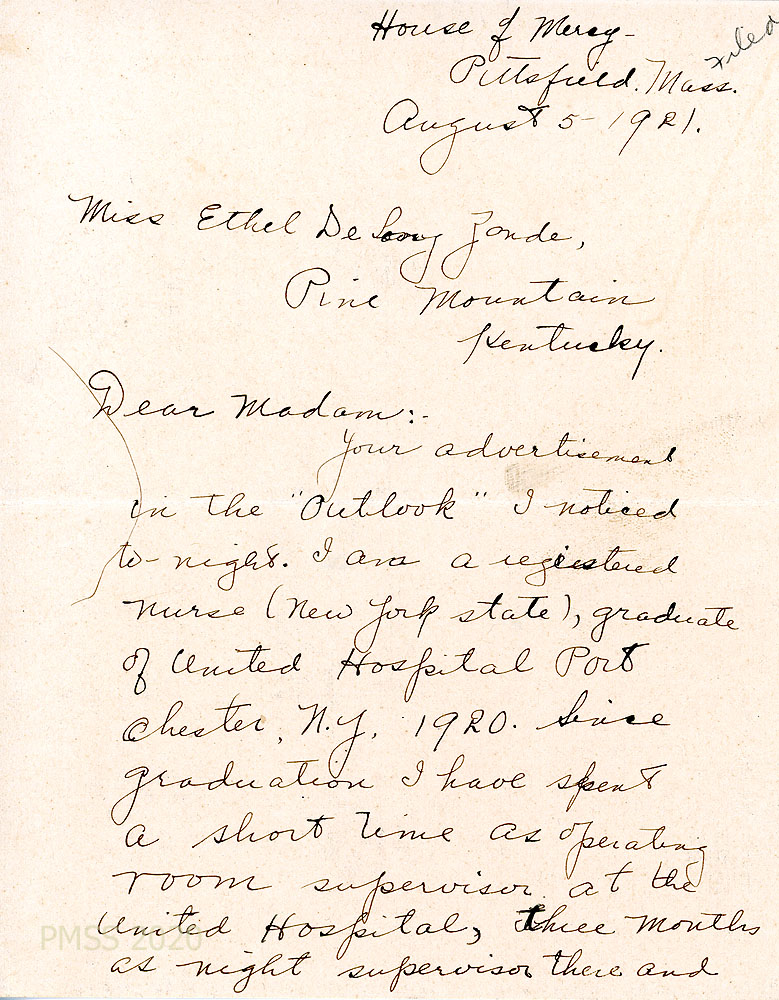 House of Mercy-
Filed
Pittsfield. Mass.
August 5-1921.
Miss Ethel De Long Zande,
Pine Mountain
Kentucky.
Dear Madam:-
Your advertisement
in the "Outlook" I noticed
to-night. I am a registered
nurse (New York state), graduate
of United Hospital Port
Chester, N.Y. 1920. Since
graduation I have spent
a short time as operating
room supervisor at the
United Hospital, three months
as night supervisor there and
PMSS 2020